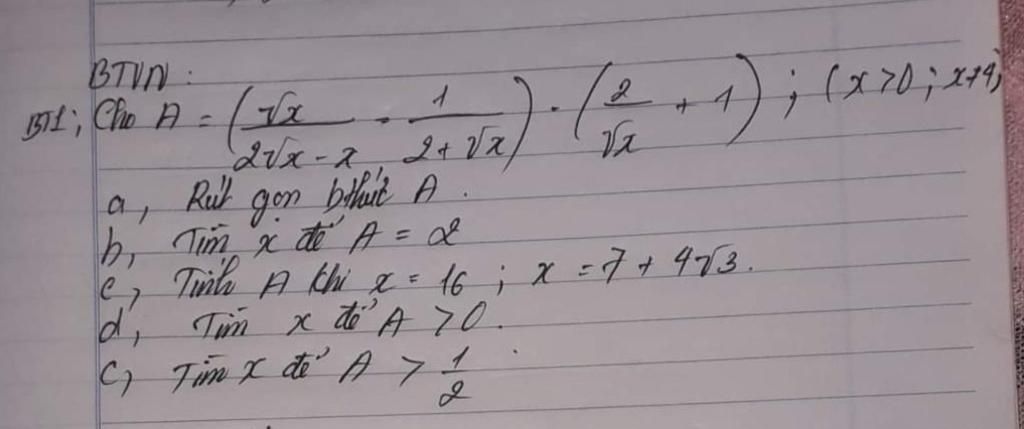 BTVN :
BT1; Cho A = (√x / (2√x - x) - 1 / (2 + √x)) · (2/√x + 1) ; (x > 0 ; x ≠ 4)
a, Rút gọn bthức A.
b, Tìm x để A = 2
c, Tính A khi x = 16 ; x = 7 + 4√3.
d, Tìm x để A > 0.
c, Tìm x để A > 1/2